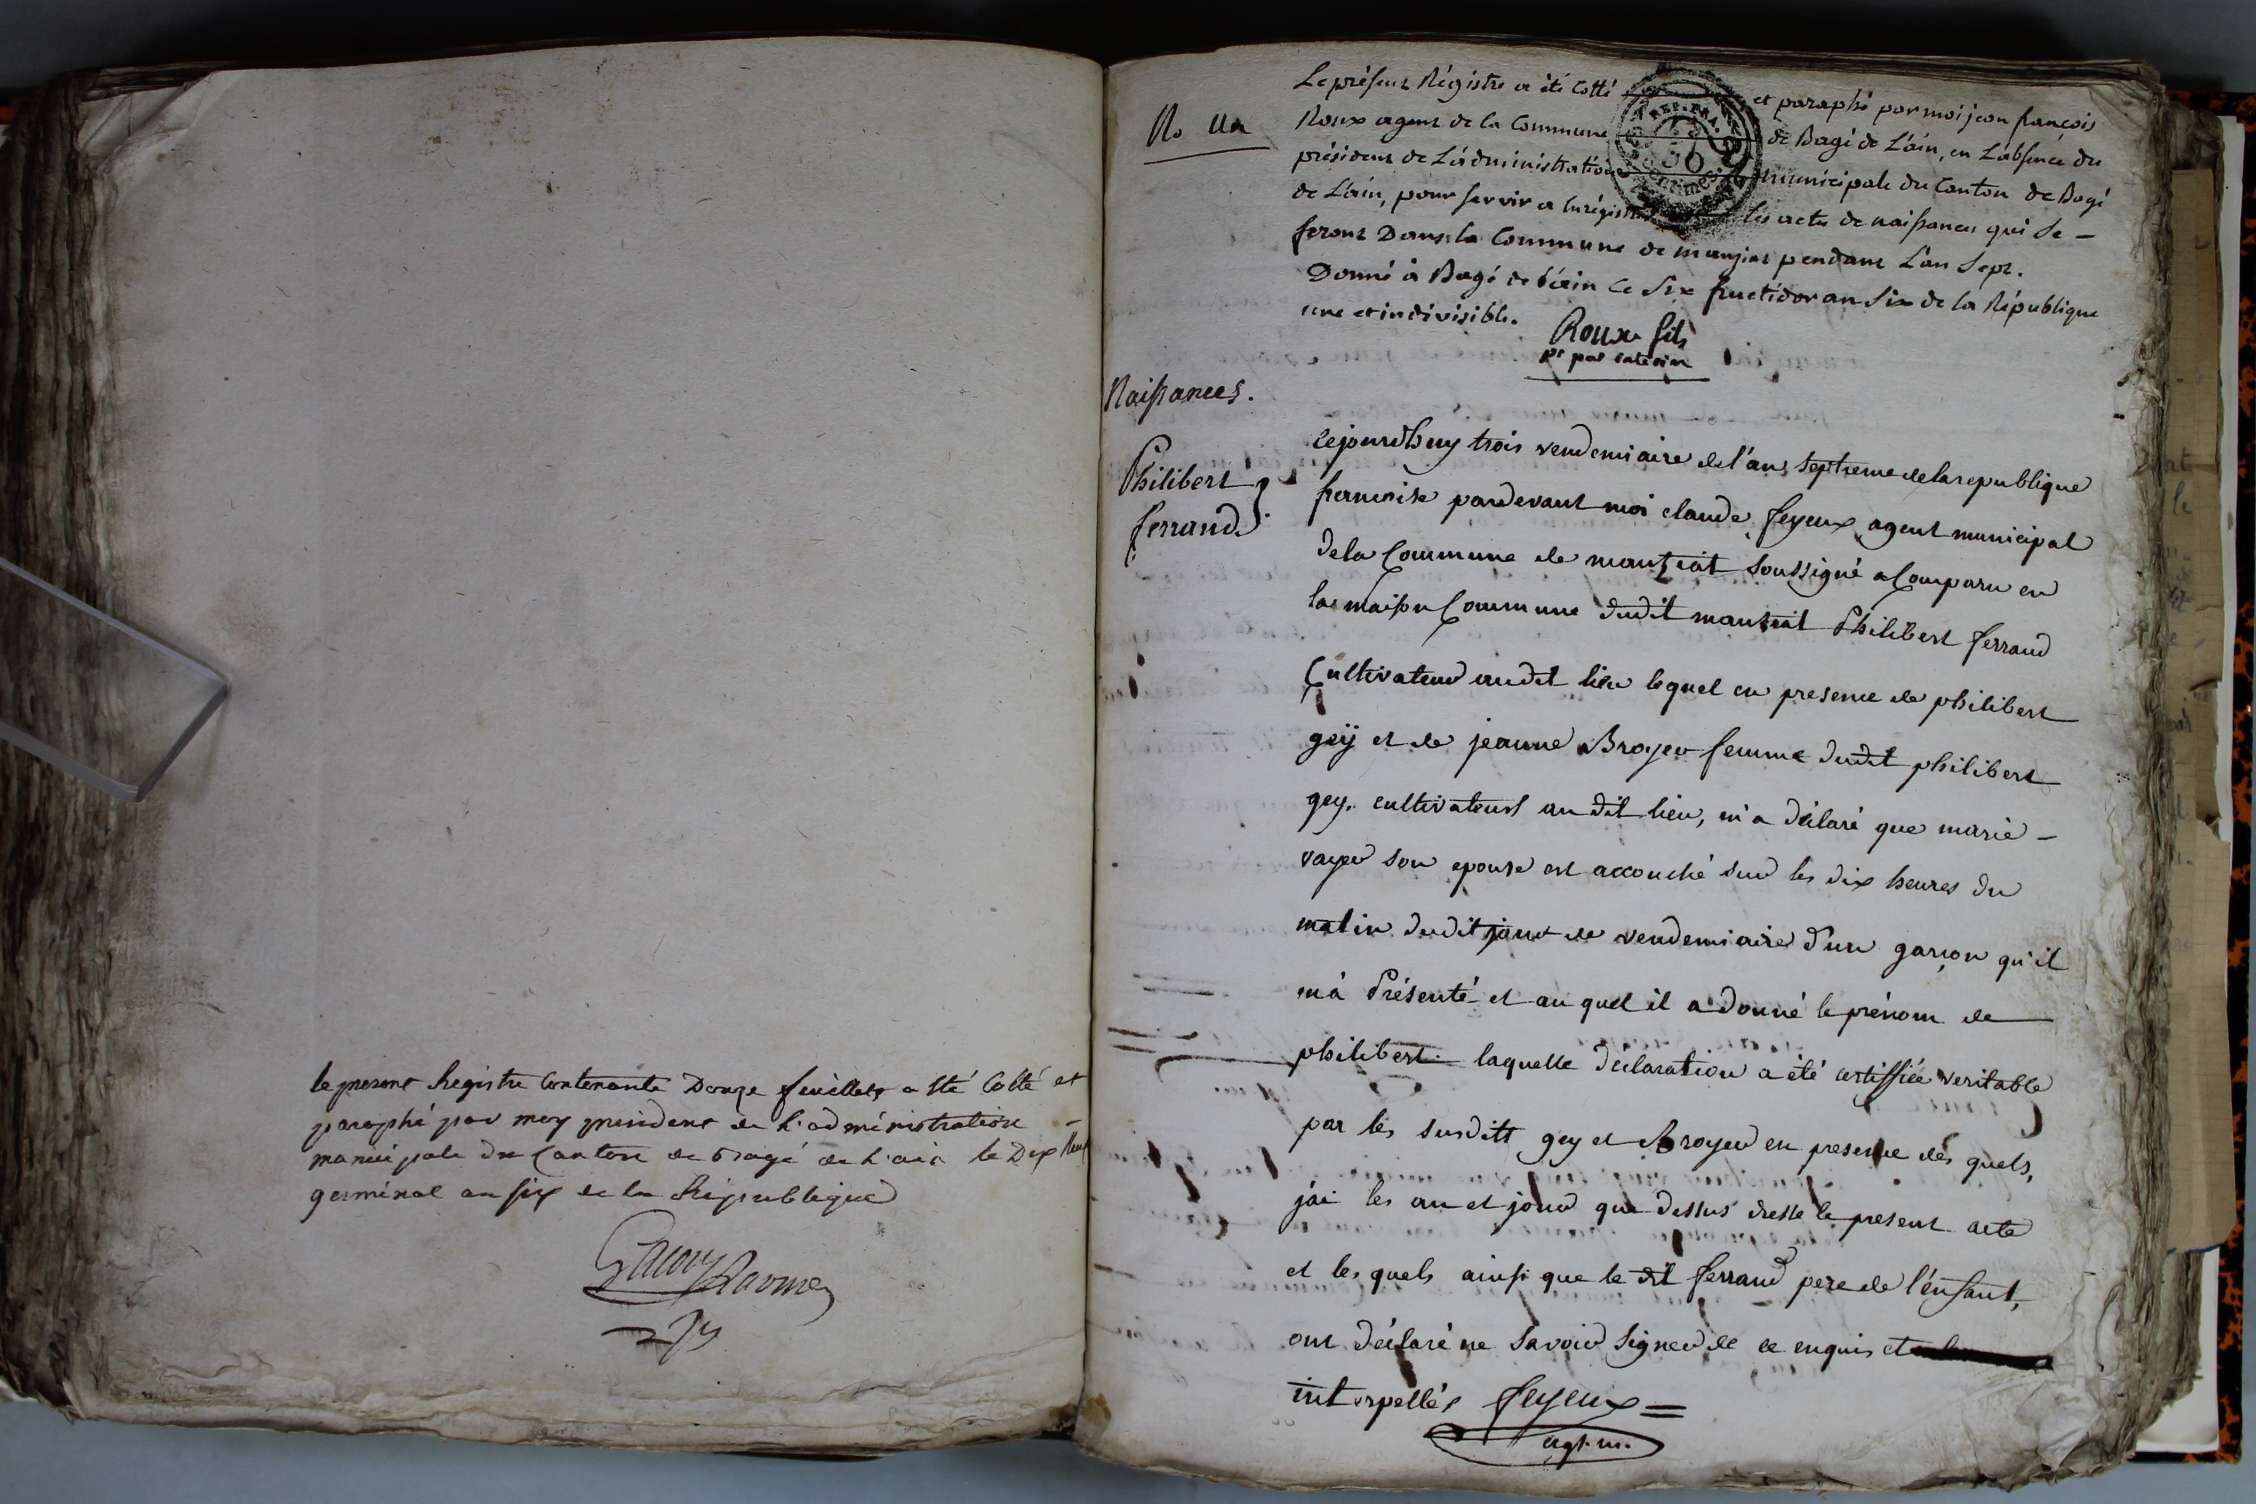 le present Registre Contenante Douze feuillets a Eté Cotté et
paraphé par moy president de L'administration
municipale du Canton de Bagé de L'ain le Dix Neuf
germinal an six de la République
No Un
Le présent Régistre a été Cotté et paraphé par moi jean françois
Roux agent de la Commune de Bagé de L'ain, en L'absence du
président de L'administration municipale du Canton de Bagé
de L'ain, pour servir a Enrégistrer les actes de naissances qui se -
feront Dans la Commune de manziat pendant L'an Sept.
Donné à Bagé de L'ain Ce Six fructidor an Six de la République
une et indivisible.
Roux fils
pt par interim
REP. FRA.
Naissances.
Philibert
ferrand
Cejourdhuy trois vendemiaire de l'an septieme de la republique
francoise pardevant moi claude feyeux agent municipal
de la Commune de mantziat soussigné a Comparu en
la maison Commune dudit mantziat Philibert ferrand
Cultivateur audit lieu lequel en presence de philibert
geÿ et de jeanne Broyer femme dudit philibert
gey. cultivateurs au dit lieu, m'a déclaré que marie -
vayer son epouse est accouché sur les dix heures du
matin dudit jour de vendemiaire d'un garçon qu'il
m'à Présenté et au quel il a donné le prénom de
philibert. laquelle déclaration a été certiffiée veritable
par les susdits gey et Broyer en presence des quels,
j'ai les an et jour que dessus dressé le present acte
et les quels ainsi que le dit ferrand pere de l'enfant,
ont déclaré ne savoir signer de ce enquis et
interpellés feyeux
agt. m.